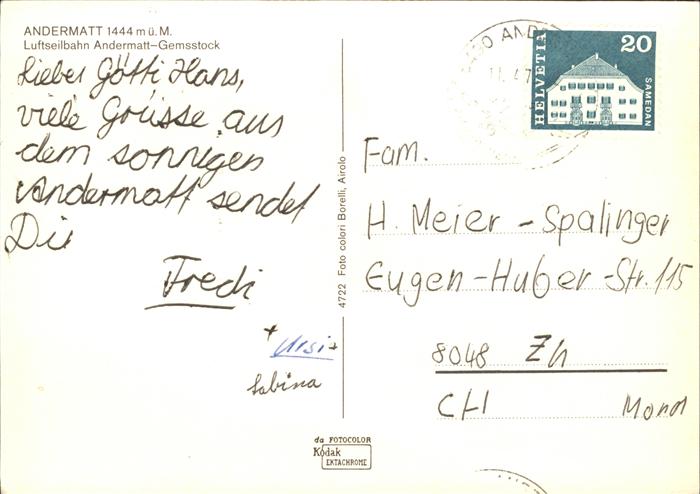 ANDERMATT 1444 m ü. M.
Luftseilbahn Andermatt–Gemsstock
Lieber Götti Hans,
viele Grüsse aus
dem sonnigen
Andermatt sendet
Dir
Fredi
+ Ursi +
Sabina
4722 Foto colori Borelli, Airolo
da FOTOCOLOR
Kodak
EKTACHROME
HELVETIA
20
SAMEDAN
Fam.
H. Meier - Spalinger
Eugen-Huber-Str. 115
8048 Zh
CH Mond